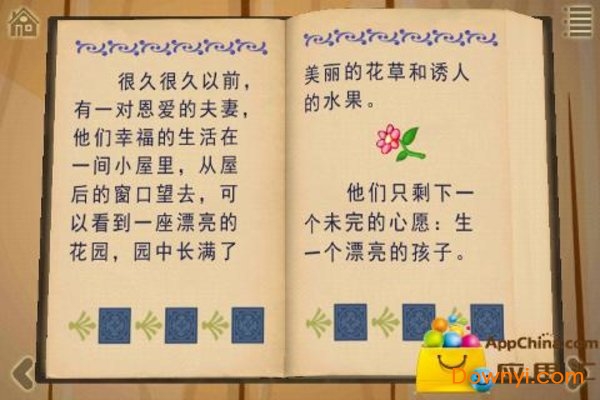 很久很久以前，
有一对恩爱的夫妻，
他们幸福的生活在
一间小屋里，从屋
后的窗口望去，可
以看到一座漂亮的
花园，园中长满了
美丽的花草和诱人
的水果。
他们只剩下一
个未完的心愿：生
一个漂亮的孩子。
AppChina.com
Downyi.com